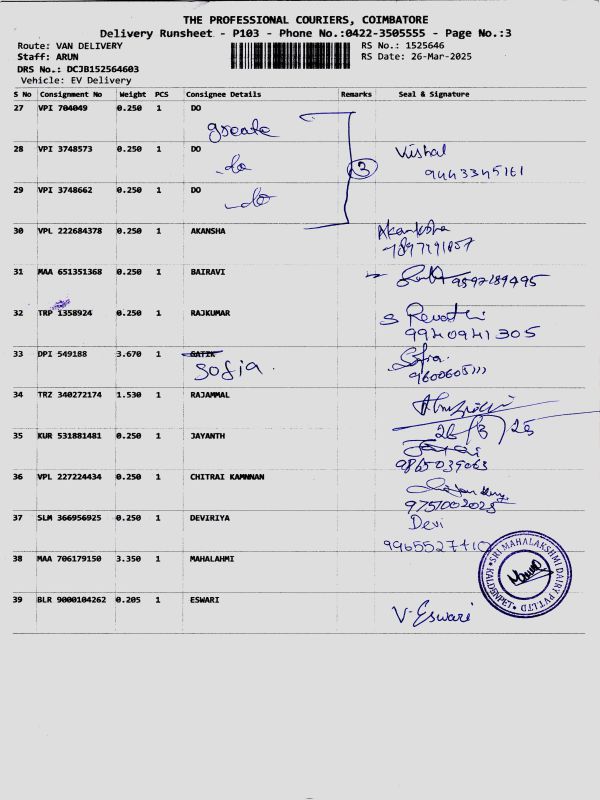 THE PROFESSIONAL COURIERS, COIMBATORE
Delivery Runsheet - P103 - Phone No.:0422-3505555 - Page No.:3
Route: VAN DELIVERY RS No.: 1525646
Staff: ARUN RS Date: 26-Mar-2025
DRS No.: DCJB152564603
Vehicle: EV Delivery
S No Consignment No Weight PCS Consignee Details Remarks Seal & Signature
27 VPI 704049 0.250 1 DO
greate
28 VPI 3748573 0.250 1 DO Vishal
do 3 9443345161
29 VPI 3748662 0.250 1 DO
do
30 VPL 222684378 0.250 1 AKANSHA Akanksha
7897191857
31 MAA 651351368 0.250 1 BAIRAVI 9597289495
32 TRP 1358924 0.250 1 RAJKUMAR S Revathi
9940941305
33 DPI 549188 3.670 1 SATIK Sofia
Sofia. 9600605111
34 TRZ 340272174 1.530 1 RAJAMMAL
26/3/25
35 KUR 531881481 0.250 1 JAYANTH
9865039063
36 VPL 227224434 0.250 1 CHITRAI KAMNNAN
9751002023
37 SLM 366956925 0.250 1 DEVIRIYA Devi
9965527410
38 MAA 706179150 3.350 1 MAHALAHMI
SRI MAHALAKSHMI DAIRY PVT LTD
39 BLR 9000104262 0.205 1 ESWARI V. Eswari